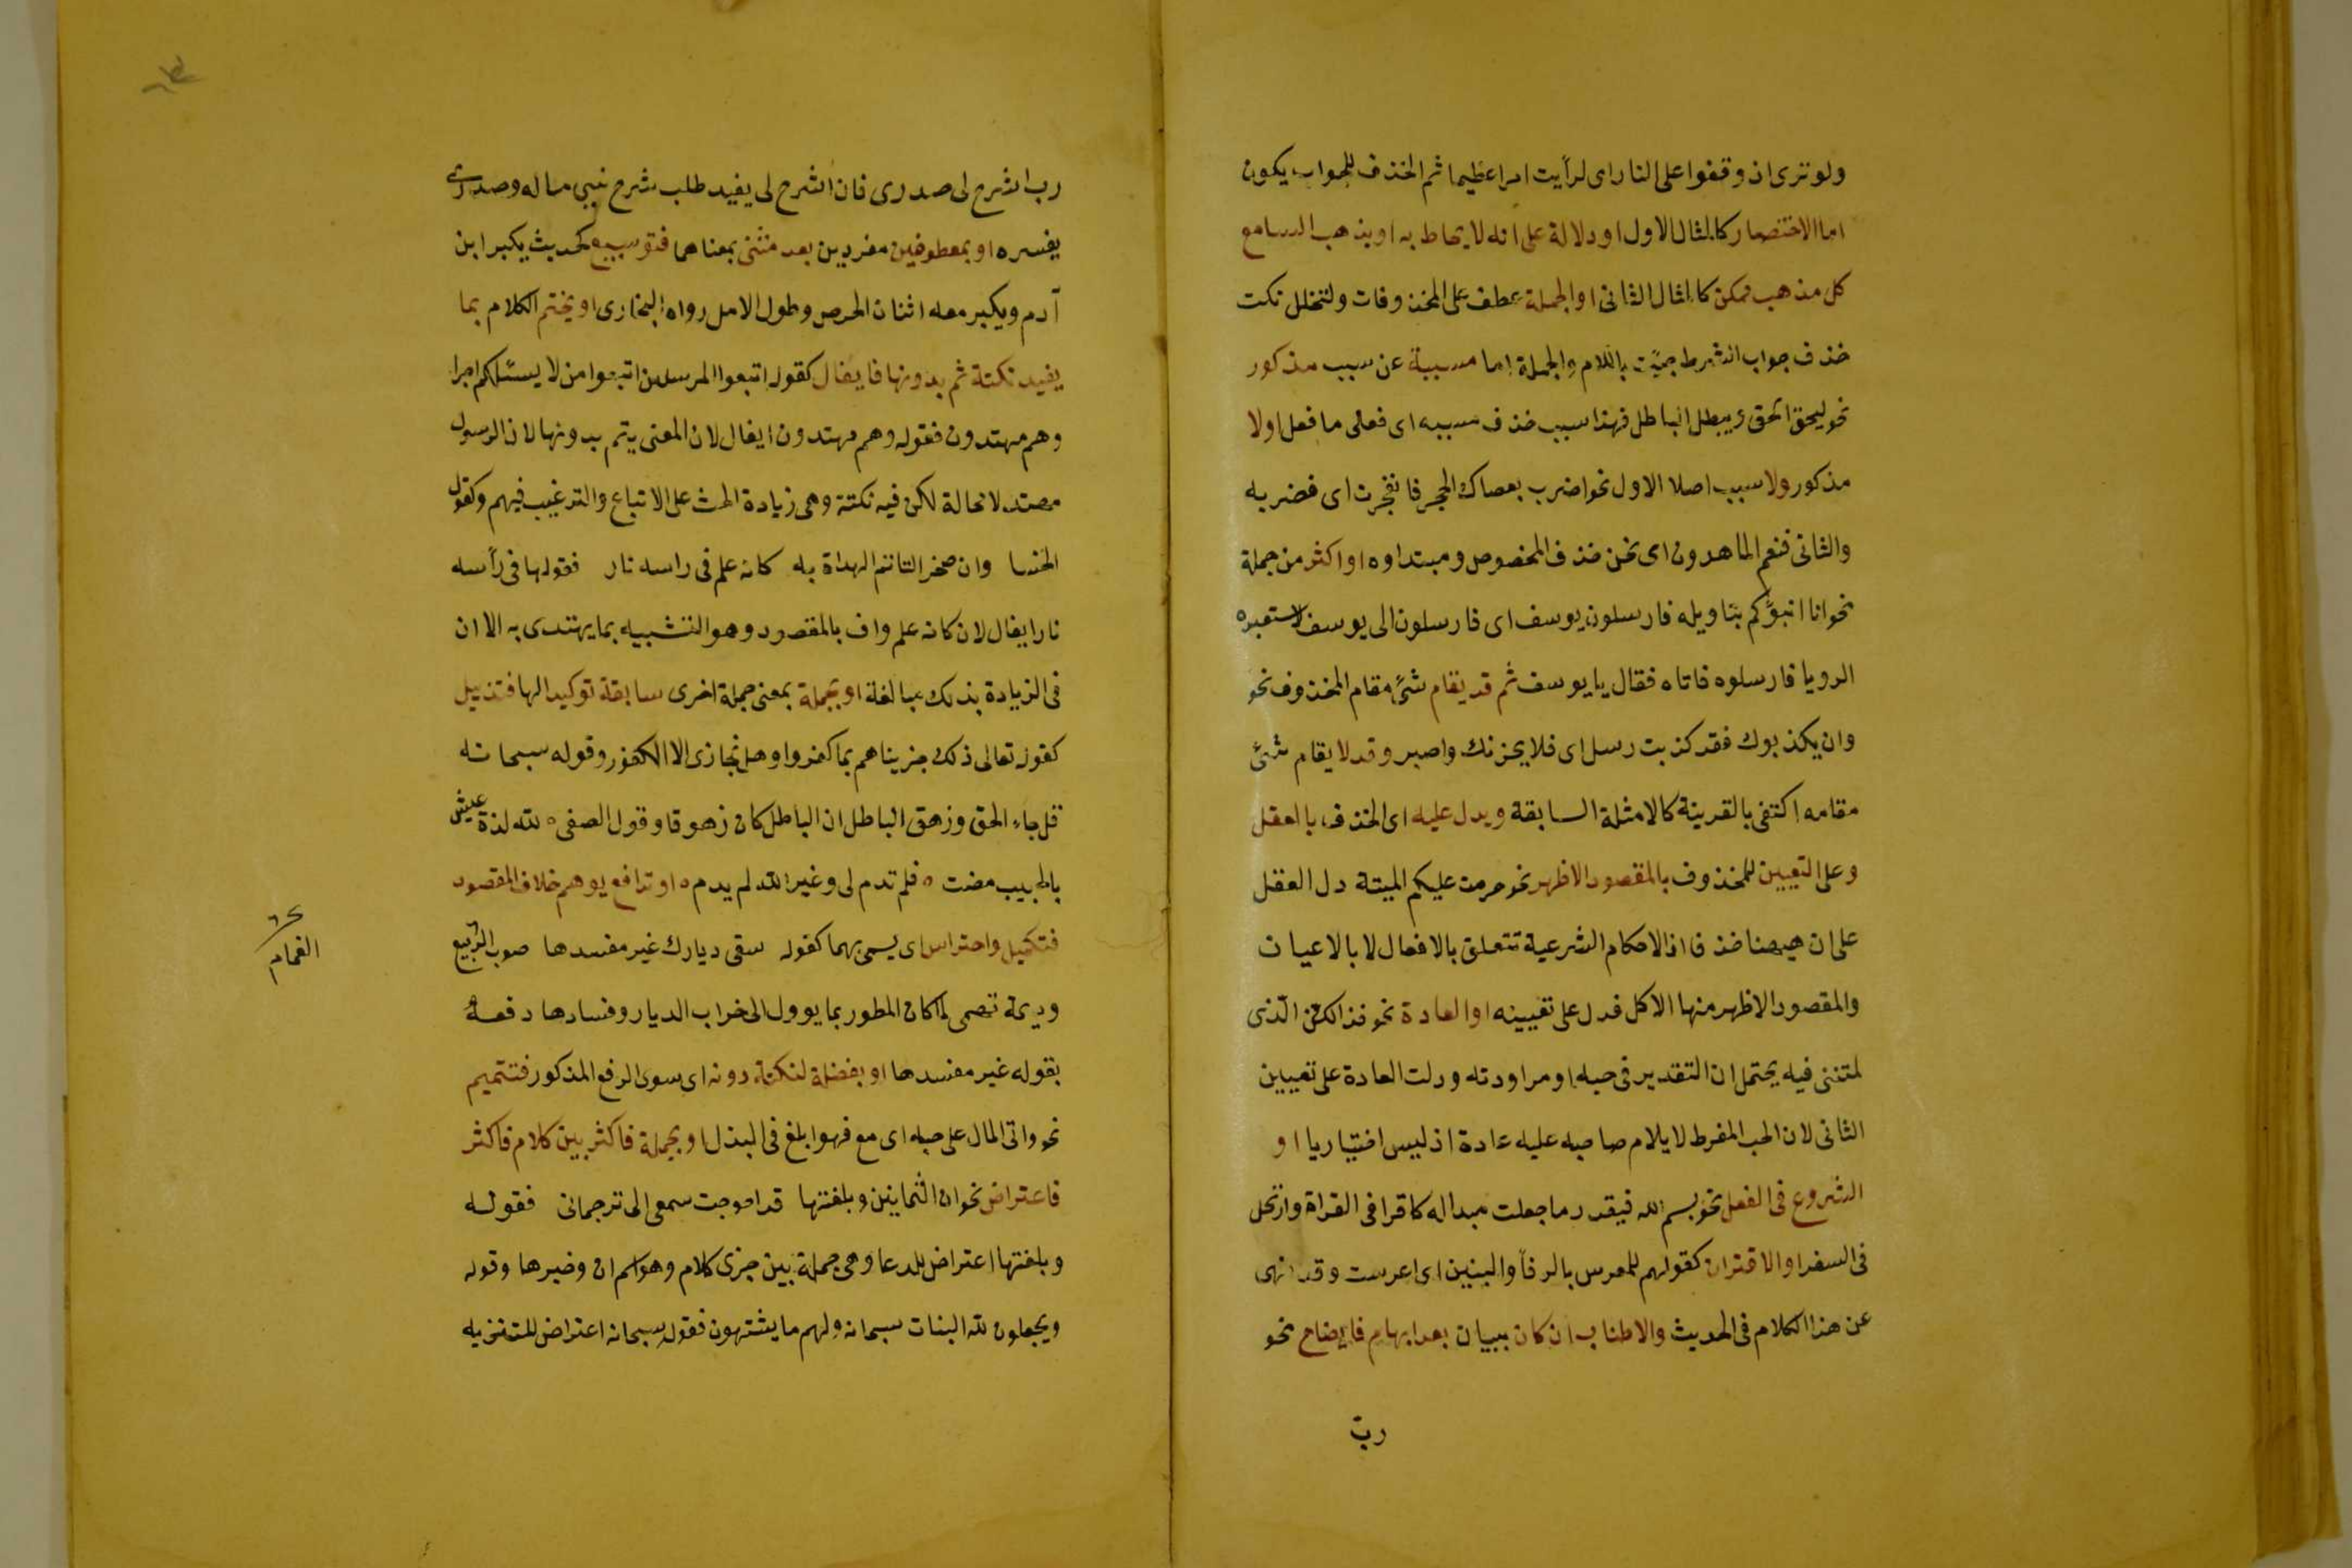 ولو ترى اذ وقفوا على النار اى لرأيت امرا عظيما ثم الحذف للجواب يكون
اما الاختصار كالمثال الاول او دلالة على انه لا يحاط به او يذهب السامع
كل مذهب ممكن كالمثال الثانى او الجملة عطف على المحذوفات ولتخلل نكت
حذف جواب الشرط جيئت باللام والجملة اما مسببة عن سبب مذكور
نحو ليحق الحق ويبطل الباطل فهذا سبب حذف مسببه اى فعلى ما فعل اولا
مذكور ولا سبب اصلا الاول نحو اضرب بعصاك الحجر فانفجرت اى فضربه
والثانى فنعم الماهدون اى نحن حذف المخصوص ومبتداوه او اكثر من جملة
نحو انا انبؤكم بتاويله فارسلون يوسف اى فارسلون الى يوسف لاستعبره
الرويا فارسلوه فاتاه فقال يا يوسف ثم قد يقام شئ مقام المحذوف نحو
وان يكذبوك فقد كذبت رسل اى فلا يحزنك واصبر وقد لا يقام شئ
مقامه اكتفى بالقرينة كالامثلة السابقة ويدل عليه اى الحذف بالعقل
وعلى التعيين للمحذوف بالمقصود الاظهر نحو حرمت عليكم الميتة دل العقل
على ان هيهنا حذفا اذ الاحكام الشرعية تتعلق بالافعال لا بالاعيان
والمقصود الاظهر منها الاكل فدل على تعيينه او العادة نحو فذالكن الذى
لمتننى فيه يحتمل ان التقدير فى حبه او مراودته ودلت العادة على تعيين
الثانى لان الحب المفرط لا يلام صاحبه عليه عادة اذ ليس اختياريا او
الشروع فى الفعل نحو بسم الله فيقدر ما جعلت مبداله كاقرا فى القراة وارتحل
فى السفر او الاقتران كقولهم للمعرس بالرفأ والبنين اى اعرست وقد نهى
عن هذا الكلام فى الحديث والاطناب ان كان ببيان بعد ابهام فايضاح نحو
رب
رب اشرح لى صدرى فان اشرح لى يفيد طلب شرح شيى ماله وصدرى
يفسره او بمعطوفين مفردين بعد مثنى بمعناهما فتوسيع كحديث يكبر ابن
آدم ويكبر معه اثنان الحرص وطول الامل رواه البخارى او يختم الكلام بما
يفيد نكتة ثم بدونها فايغال كقوله اتبعوا المرسلين اتبعوا من لا يسئلكم اجرا
وهم مهتدون فقوله وهم مهتدون ايغال لان المعنى يتم بدونها لان الرسول
مهتد لا محالة لكن فيه نكتة وهى زيادة الحث على الاتباع والترغيب فيهم وكقول
الخنسا وان صخرا لتاتم الهداة به كانه علم فى راسه نار فقولها فى رأسه
نار ايغال لان كانه علم واف بالمقصود وهو التشبيه بما يهتدى به الا ان
فى الزيادة بذلك مبالغة او بجملة بمعنى جملة اخرى سابقة توكيدا لها فتذييل
كقوله تعالى ذلك جزيناهم بما كفروا وهل نجازى الا الكفور وقوله سبحانه
قل جاء الحق وزهق الباطل ان الباطل كان زهوقا وقول الصفى ه لله لذة عيش
بالحبيب مضت ه فلم تدم لى وغير الله لم يدم ه او تدافع يوهم خلاف المقصود
فتكميل واحتراس اى يسمى بهما كقوله سقى ديارك غير مفسدها صوب الربيع
وديمة تهمى لما كان المطور بما يوول الى خراب الديار وفسادها دفعه
بقوله غير مفسدها او بفضلة لنكتة دونه اى سوى الرفع المذكور فتتميم
نحو واتى المال على حبه اى مع فهو ابلغ فى البذل او بجملة فاكثر بين كلام فاكثر
فاعتراض نحو ان الثمانين وبلغتها قد احوجت سمعى الى ترجمانى فقوله
وبلغتها اعتراض للدعا وهى جملة بين جزى كلام وهو اسم ان وخبرها وقوله
ويجعلون لله البنات سبحانه ولهم ما يشتهون فقوله سبحانه اعتراض للتنزيه
الغمام